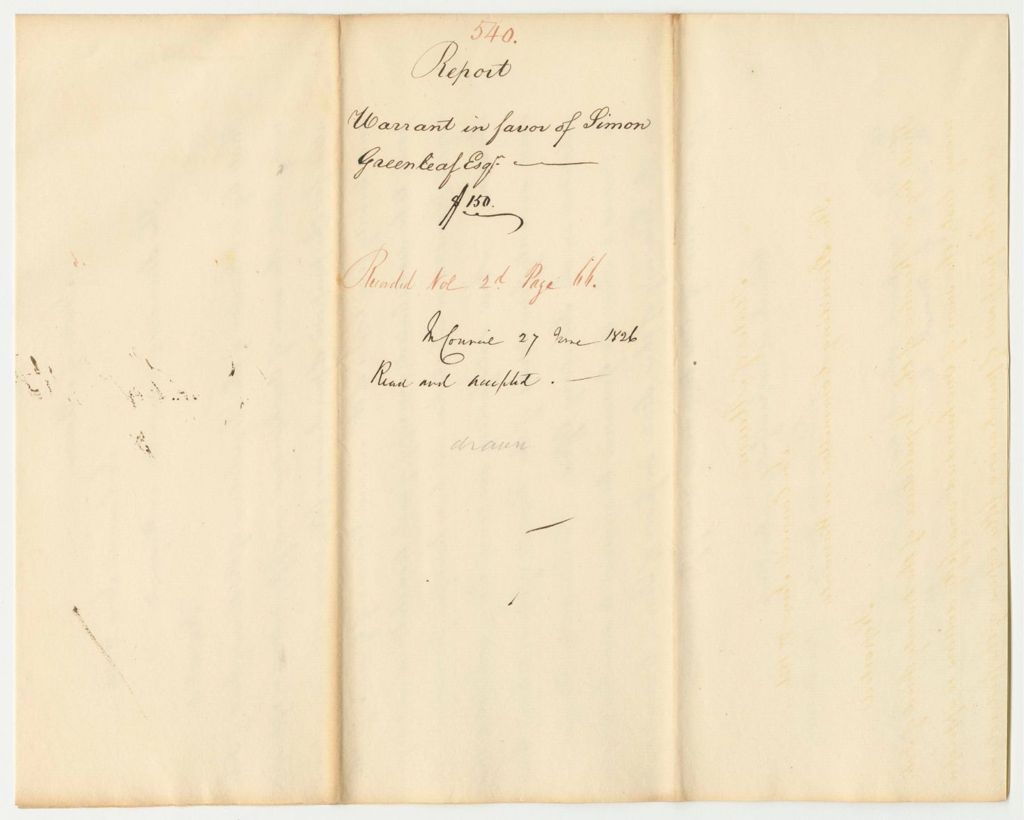 540.
Report
Warrant in favor of Simon
Greenleaf Esqr.
$150.
Recorded Vol 2d. Page 66.
In Council 27 June 1826
Read and accepted.
drawn